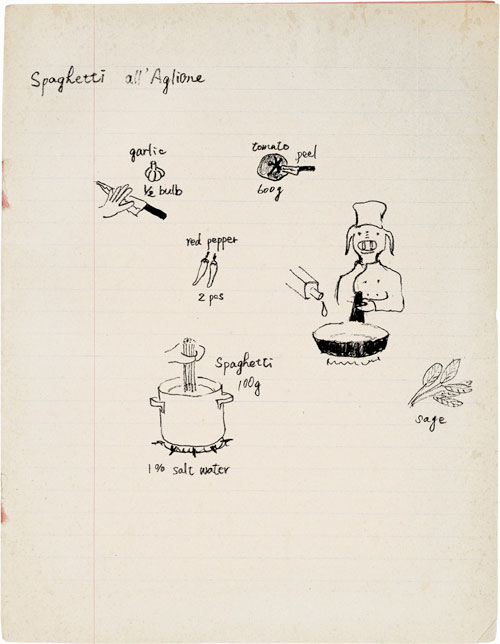 Spaghetti all'Aglione
garlic
½ bulb
tomato
peel
600g
red pepper
2 pcs
Spaghetti
100g
1% salt water
sage